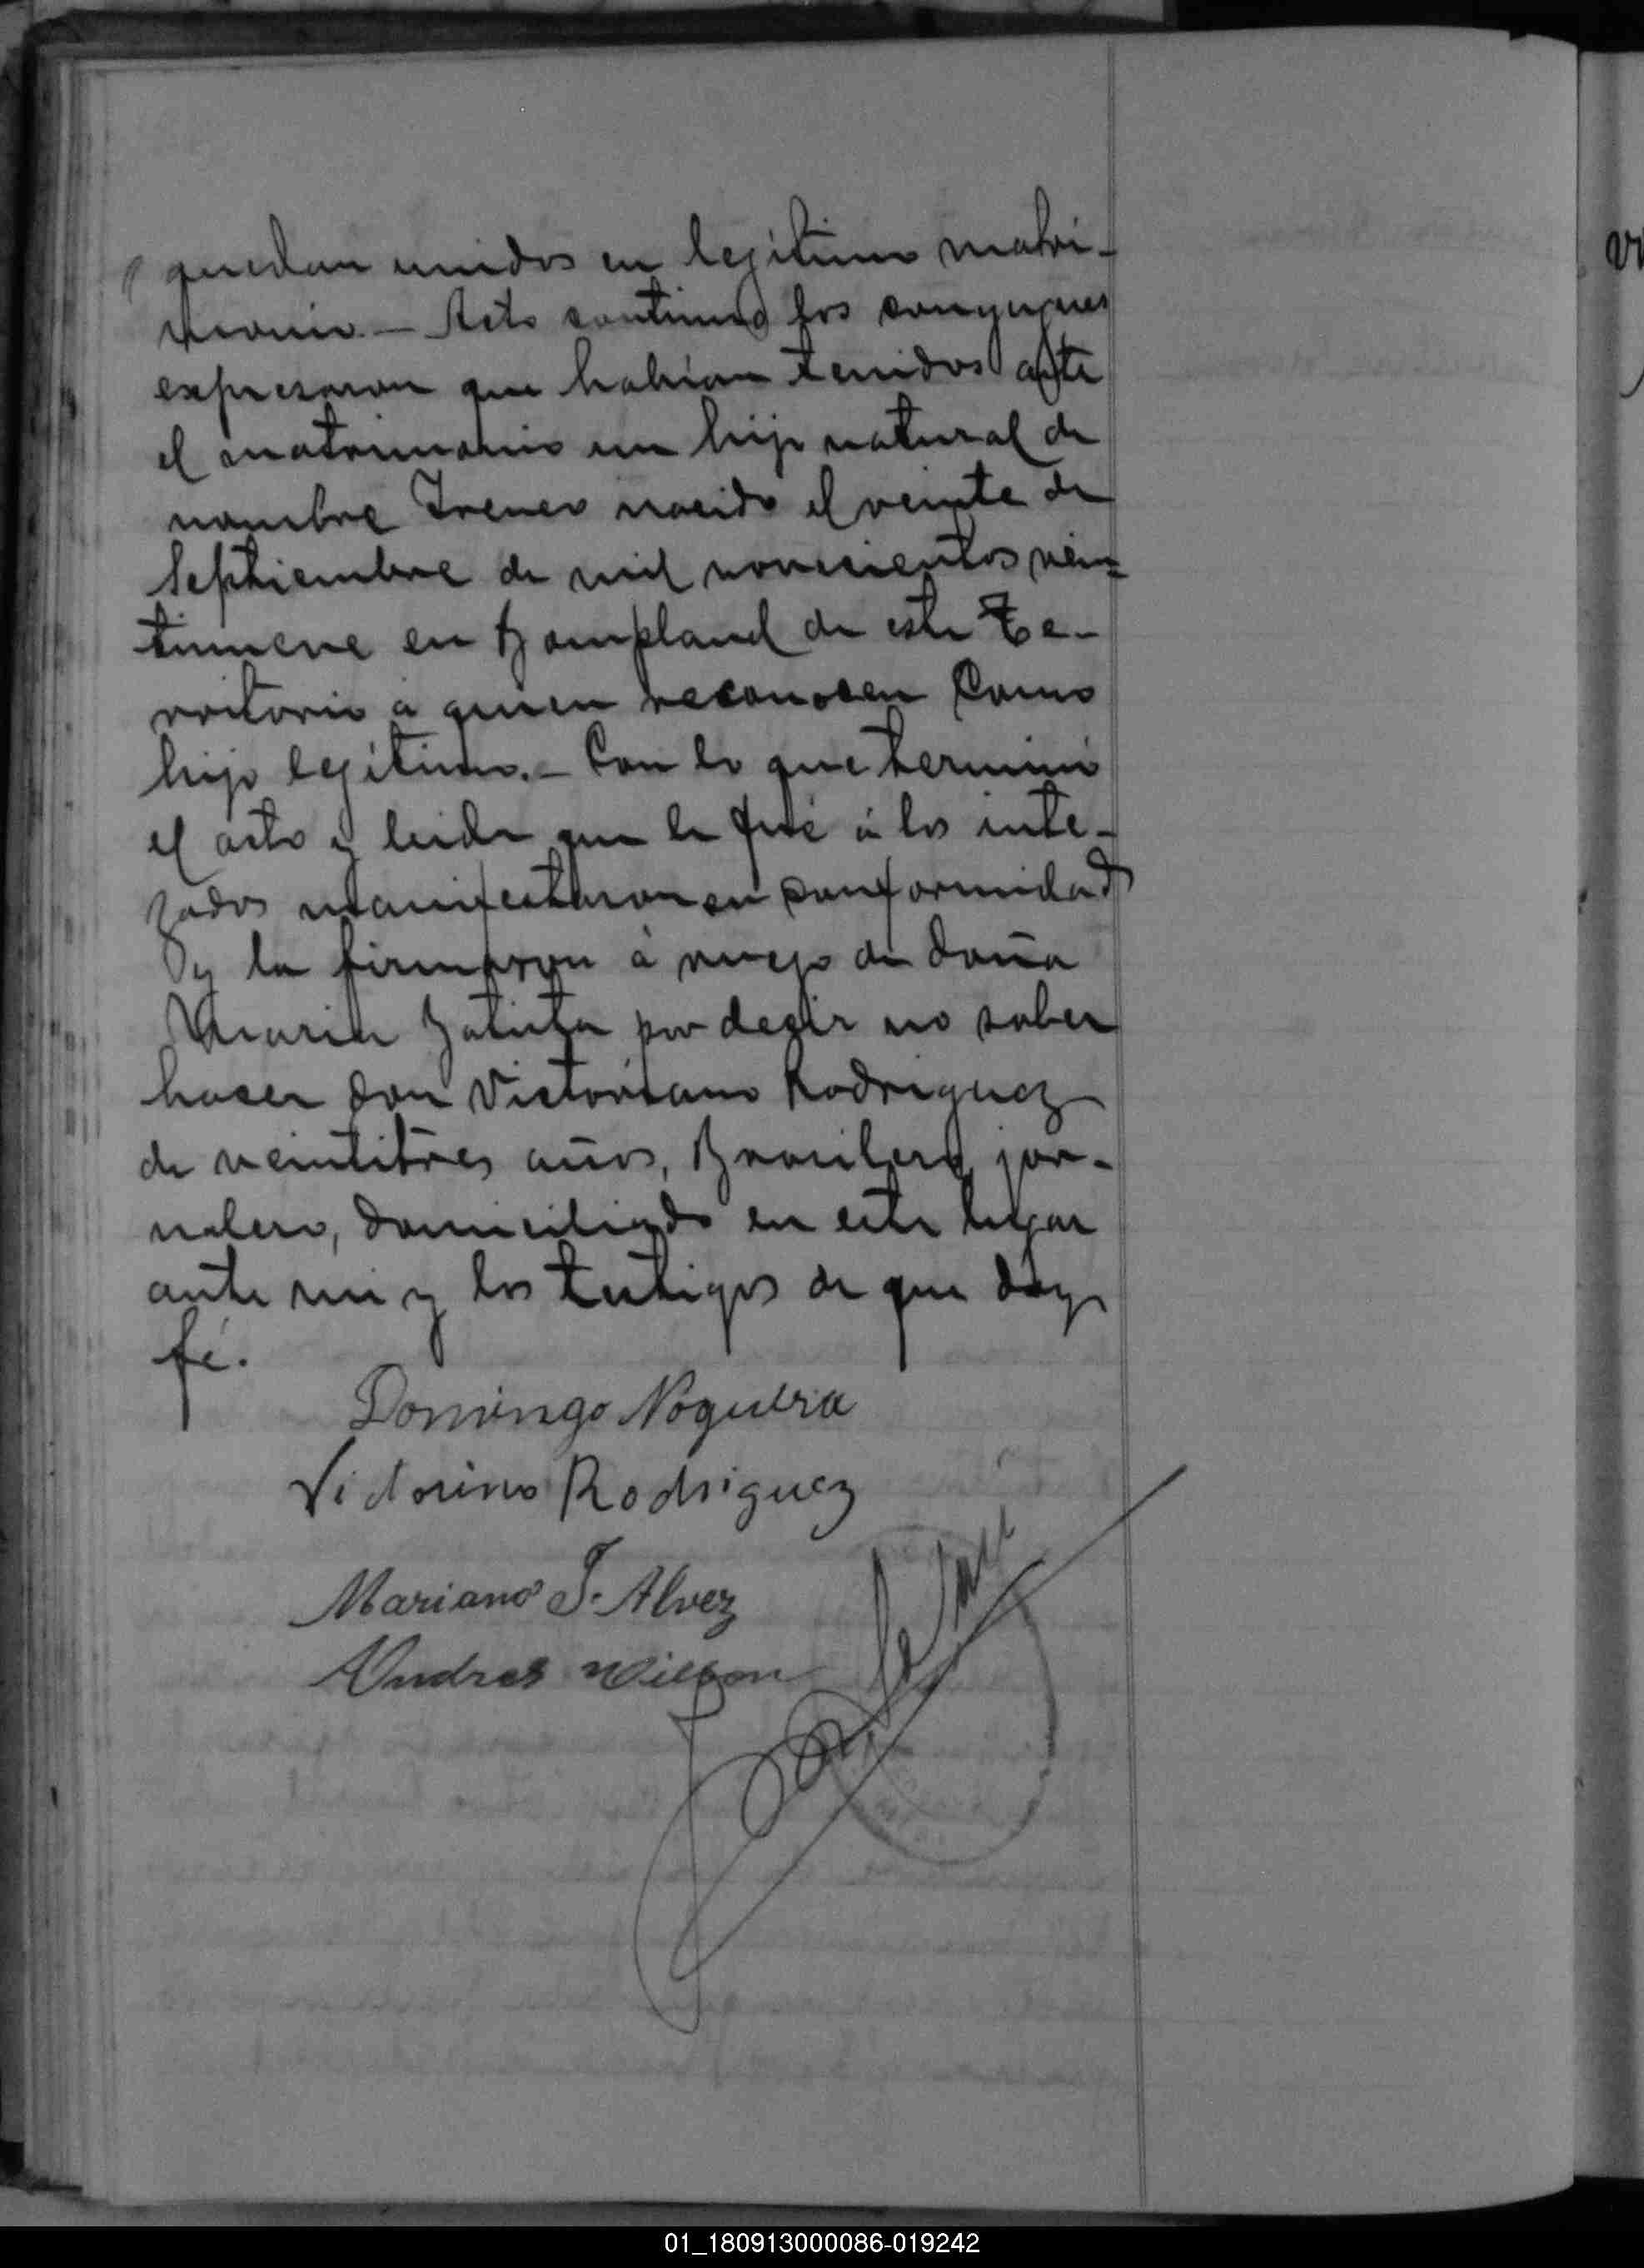 quedan unidos en legítimo matri-
monio. — Acto continuo los conyugues
expresaron que habian tenidos ante
el matrimonio un hijo natural de
nombre Ireneo nacido el veinte de
Septhiembre de mil novecientos vein-
tinueve en Bompland de este Te-
rritorio á quien reconocen Como
hijo legítimo. — Con lo que terminó
el acto y leida que le fué á los inte-
zados manifestaron su conformidad
y la firmaron á ruego de doña
Maria Batista por decir no saber
hacer don Victoriano Rodriguez
de veintitres años, Brasilero, jor-
nalero, domiciliado en este lugar
ante mi y los testigos de que doy
fé.
Domingo Noguera
Victorino Rodriguez
Mariano T. Alvez
Andres Wilson
01_180913000086-019242